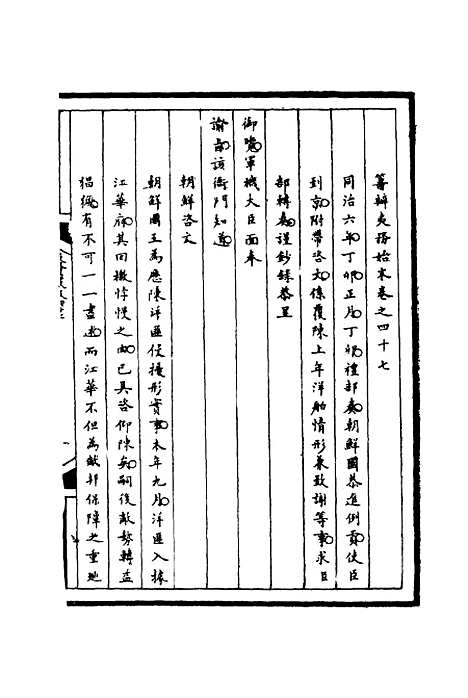 籌辦夷務始末卷之四十七
同治六年丁卯正月丁卯禮部奏朝鮮國恭進例貢使臣
到京附帶咨文係覆陳上年洋舶情形兼致謝等事求臣
部轉奏謹鈔錄恭呈
御覽軍機大臣面奉
諭旨該衙門知道
朝鮮咨文
朝鮮國王為應陳洋匪侵擾形實事本年九月洋匪入據
江華府其回檄悖慢之由已具咨仰陳矣嗣後敵勢轉益
猖獗有不可一一盡述而江華不但為敝邦保障之重地